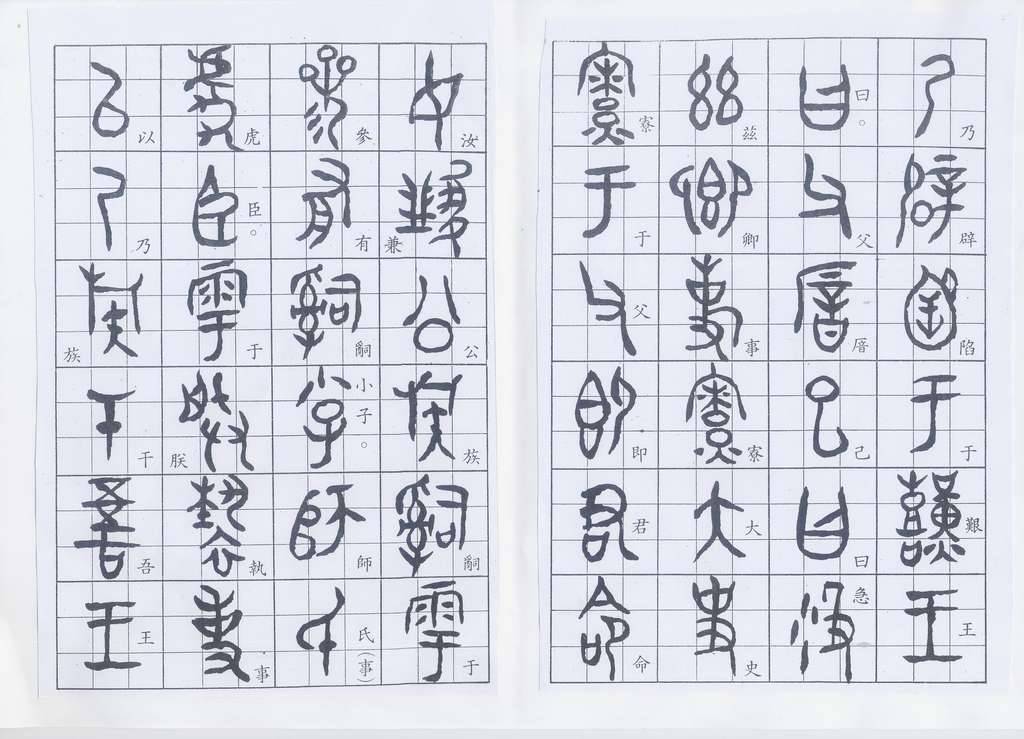 乃辟陷于艱王
曰。父厝己曰急
茲卿事寮大史
寮于父即君命
汝兼公族嗣于
參有嗣小子。師氏(事)
虎臣。于朕執事
以乃族干吾王